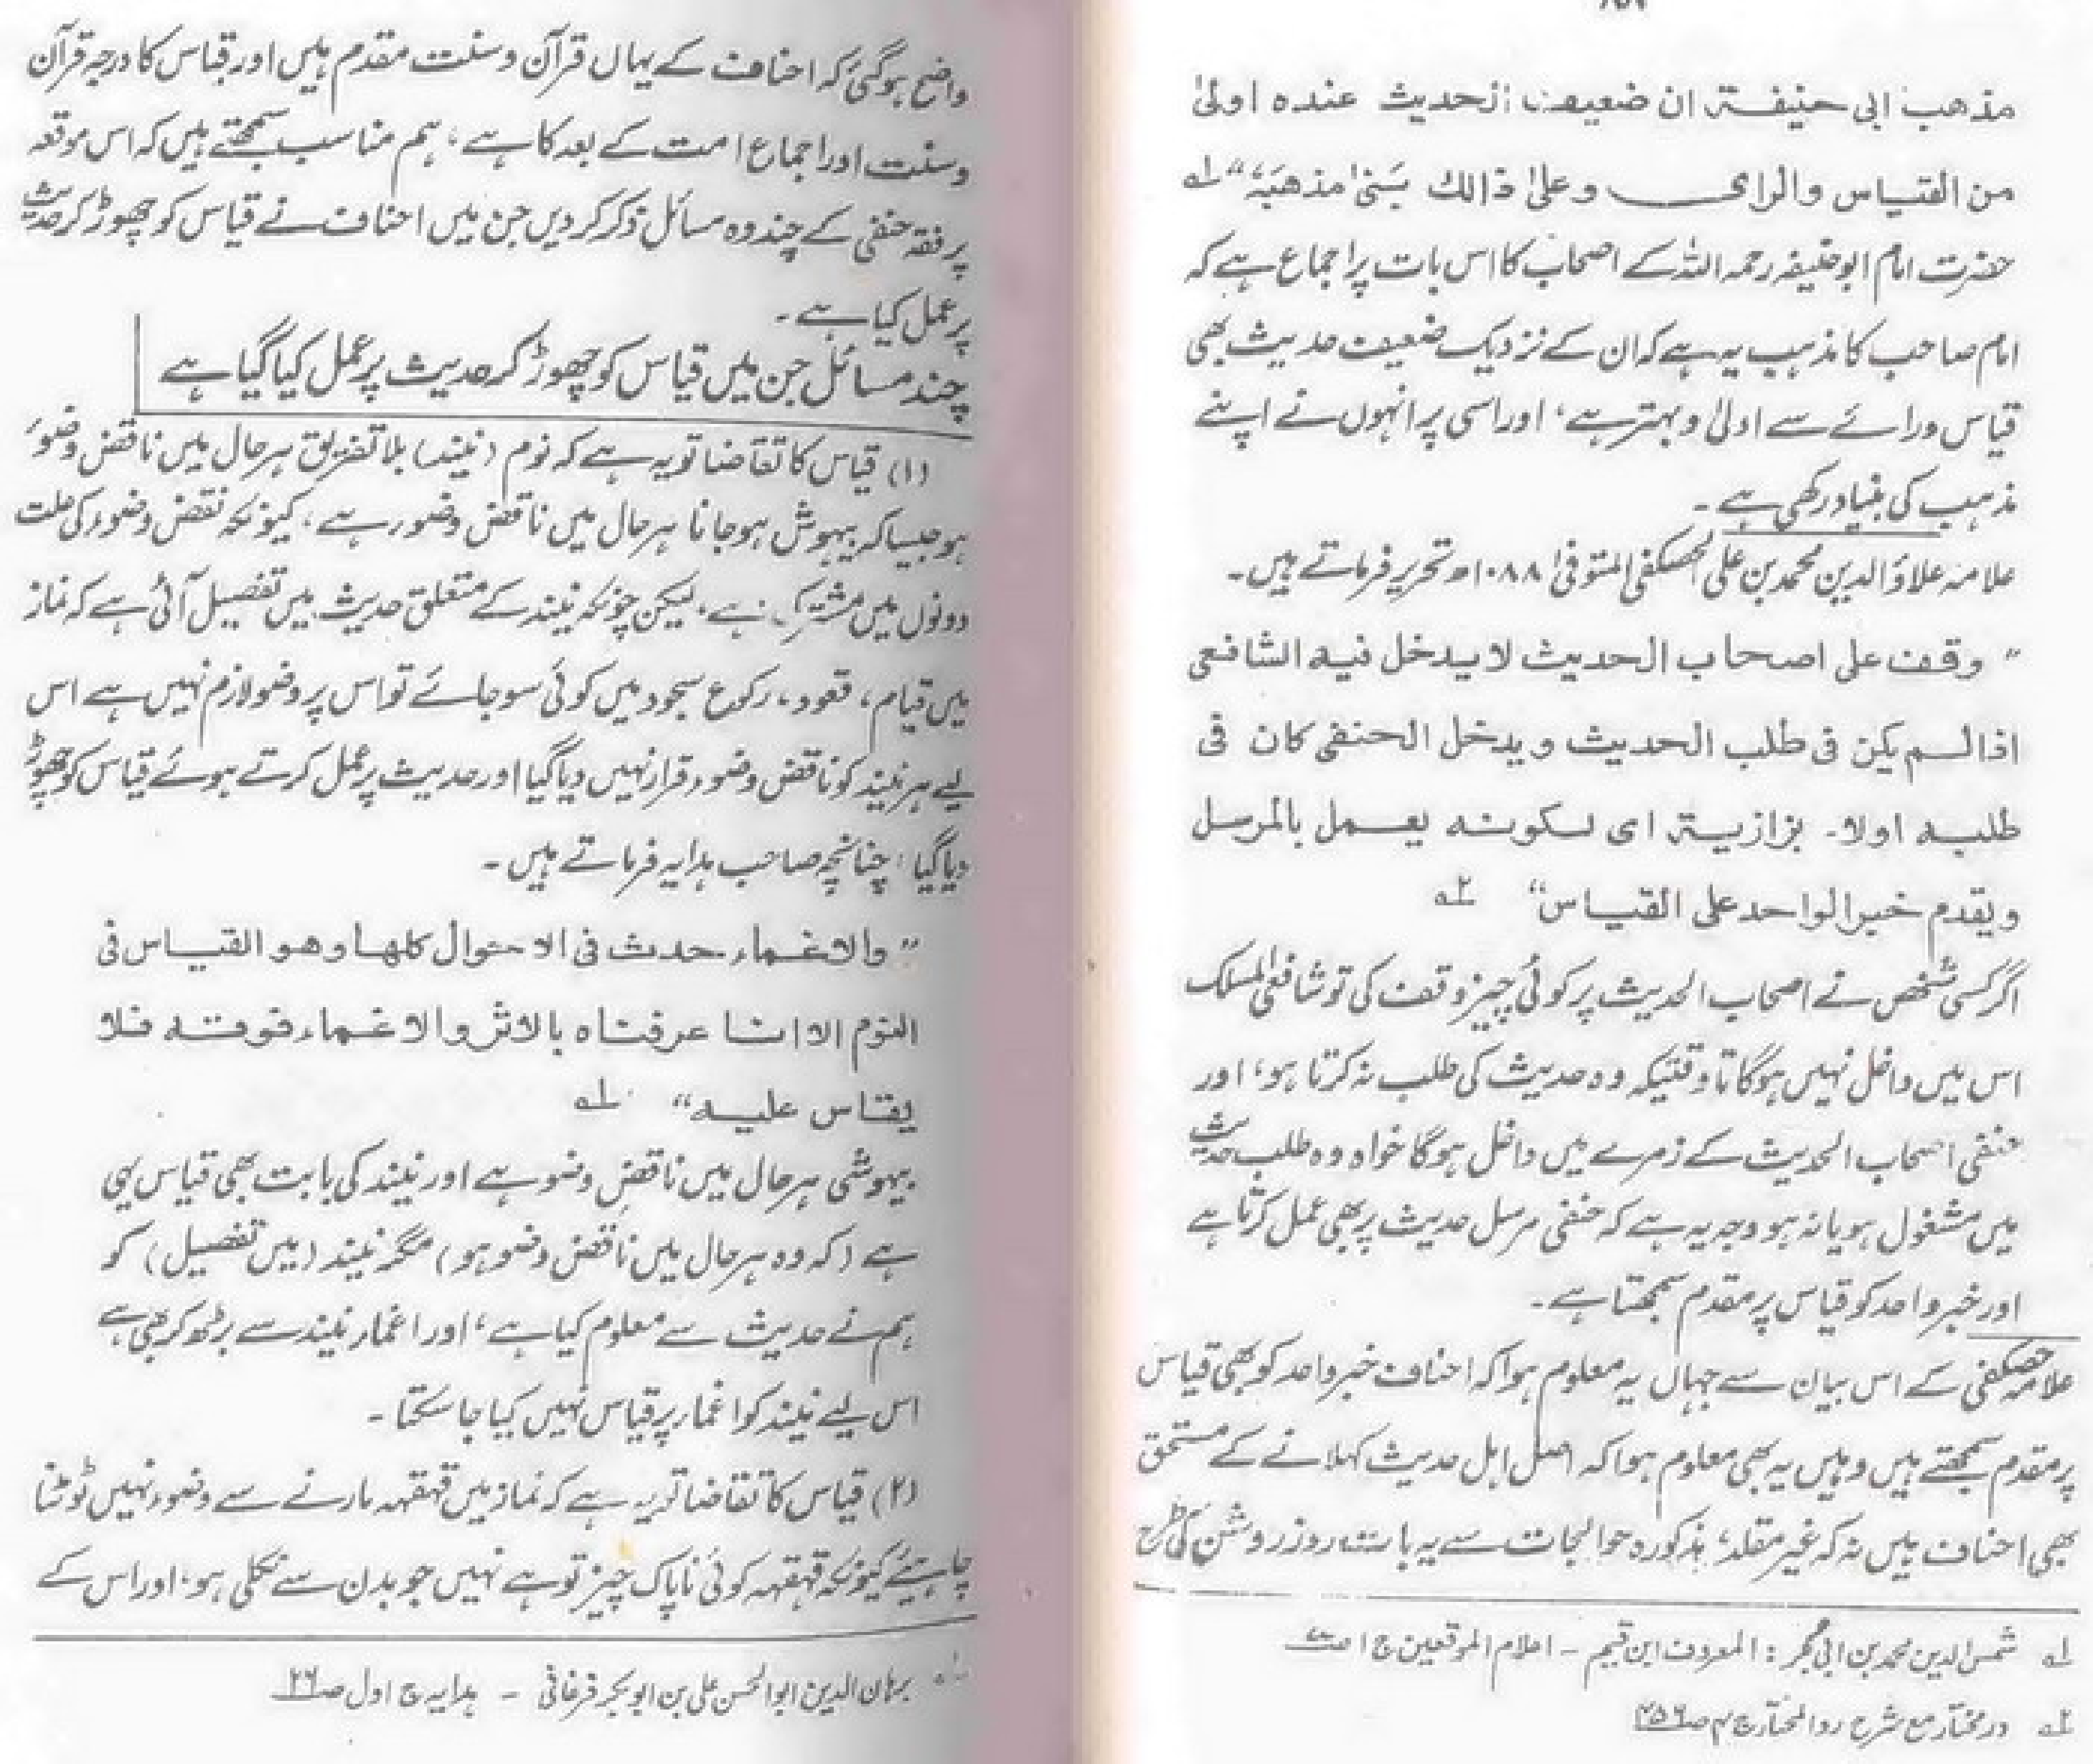 مذهب ابی حنیفة ان ضعیف الحدیث عنده اولیٰ
من القیاس والرای وعلیٰ ذالک بَنیٰ مذهبَهٗ“ ؎۱
حضرت امام ابوحنیفہ رحمہ اللہ کے اصحاب کا اس بات پر اجماع ہے کہ
امام صاحب کا مذہب یہ ہے کہ ان کے نزدیک ضعیف حدیث بھی
قیاس ورائے سے اولیٰ وبہتر ہے، اور اسی پر انہوں نے اپنے
مذہب کی بنیاد رکھی ہے۔
علامہ علاؤ الدین محمد بن علی الحصکفی المتوفیٰ ۱۰۸۸ھ تحریر فرماتے ہیں۔
”وقف علی اصحاب الحدیث لا یدخل فیه الشافعی
اذا لم یکن فی طلب الحدیث ویدخل الحنفی کان فی
طلبه اولا۔ بزازیة ای لکونه یعمل بالمرسل
ویقدم خبر الواحد علی القیاس“ ؎۲
اگر کسی شخص نے اصحاب الحدیث پر کوئی چیز وقف کی تو شافعی المسلک
اس میں داخل نہیں ہوگا تاوقتیکہ وہ حدیث کی طلب نہ کرتا ہو، اور
حنفی اصحاب الحدیث کے زمرے میں داخل ہوگا خواہ وہ طلب حدیث
میں مشغول ہو یا نہ ہو وجہ یہ ہے کہ حنفی مرسل حدیث پر بھی عمل کرتا ہے
اور خبر واحد کو قیاس پر مقدم سمجھتا ہے۔
علامہ حصکفی کے اس بیان سے جہاں یہ معلوم ہوا کہ احناف خبر واحد کو بھی قیاس
پر مقدم سمجھتے ہیں وہیں یہ بھی معلوم ہوا کہ اصل اہل حدیث کہلانے کے مستحق
بھی احناف ہیں نہ کہ غیر مقلد، مذکورہ حوالجات سے یہ بات روز روشن کی طرح
؎۱ شمس الدین محمد بن ابی بکر: المعروف ابن قیم - اعلام الموقعین ج ۱ ص
؎۲ درمختار مع شرح رد المختار ج ۴ ص ۴۵۶
واضح ہوگئی کہ احناف کے یہاں قرآن وسنت مقدم ہیں اور قیاس کا درجہ قرآن
وسنت اور اجماع امت کے بعد کا ہے، ہم مناسب سمجھتے ہیں کہ اس موقعہ
پر فقہ حنفی کے چند وہ مسائل ذکر کر دیں جن میں احناف نے قیاس کو چھوڑ کر حدیث
پر عمل کیا ہے۔
چند مسائل جن میں قیاس کو چھوڑ کر حدیث پر عمل کیا گیا ہے
(۱) قیاس کا تقاضا تو یہ ہے کہ نوم (نیند) بلا تفریق ہر حال میں ناقض وضوء
ہو جیسا کہ بیہوش ہو جانا ہر حال میں ناقض وضوء ہے، کیونکہ نقض وضوء کی علت
دونوں میں مشترک ہے، لیکن چونکہ نیند کے متعلق حدیث میں تفصیل آئی ہے کہ نماز
میں قیام، قعود، رکوع سجود میں کوئی سو جائے تو اس پر وضو لازم نہیں ہے اس
لیے ہر نیند کو ناقض وضوء قرار نہیں دیا گیا اور حدیث پر عمل کرتے ہوئے قیاس کو چھوڑ
دیا گیا، چنانچہ صاحب ہدایہ فرماتے ہیں۔
”والاغماء حدث فی الاحوال کلها وهو القیاس فی
النوم الا انا عرفناه بالاثر والاغماء فوقه فلا
یقاس علیه“ ؎۱
بیہوشی ہر حال میں ناقض وضو ہے اور نیند کی بابت بھی قیاس یہی
ہے (کہ وہ ہر حال میں ناقض وضو ہو) مگر نیند (میں تفصیل) کو
ہم نے حدیث سے معلوم کیا ہے، اور اغماء نیند سے بڑھ کر بھی ہے
اس لیے نیند کو اغماء پر قیاس نہیں کیا جا سکتا۔
(۲) قیاس کا تقاضا تو یہ ہے کہ نماز میں قہقہہ مارنے سے وضوء نہیں ٹوٹنا
چاہیئے کیونکہ قہقہہ کوئی ناپاک چیز تو ہے نہیں جو بدن سے نکلی ہو، اور اس کے
؎۱ برہان الدین ابوالحسن علی بن ابوبکر فرغانی - ہدایہ ج اول ص ۲۶